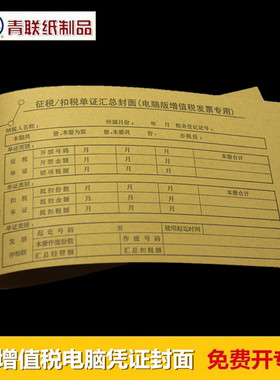 青联纸制品
征税/扣税单证汇总封面(电脑版增值税发票专用)
纳税人名称: 纳税月份: 年 月 税务登记证号:
本期共 份,本册为第 册,本册共 份, 办税员:
单证类别: 月 月 月 本册合计
征税单证 开票号码 月 月 月
开票金额 月 月 月
销项税额 月 月 月
单证类别: 月 月 月 本册合计
扣税单证 抵扣号码 月 月 月
抵扣金额 月 月 月
抵扣税额 月 月 月
单证类别:
发票存根联 起讫号码 至 使用起讫时间
本册作废份数 作废号码
汇总经营额 汇总扣税额
增值税电脑凭证封面 免费开专